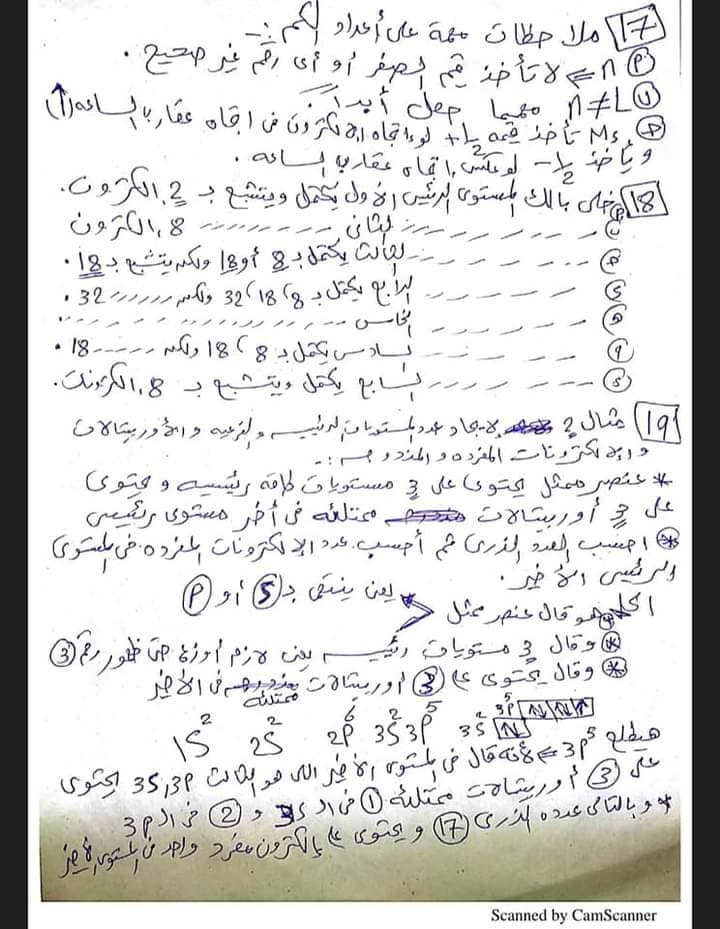 17 ملاحظات مهمة على أعداد الكم :-
أ n ⇐ لا تأخذ قيم الصفر أو أى رقم غير صحيح .
ب n ≠ L مهما حصل أبداً
ج Ms تأخذ قيمه +1/2 لو اتجاه الإلكترون فى اتجاه عقارب الساعه (↑)
ويأخذ -1/2 لو عكس اتجاه عقارب الساعه .
18 خلى بالك أ المستوى الرئيسى الأول يكتمل ويتشبع بـ 2 إلكترون.
ب - - - - - - الثانى - - - - - - - - 8 إلكترون
ج - - - - - - الثالث يكتمل بـ 8 أو 18 ولكن يتشبع بـ 18 .
د - - - - - - الرابع يكتمل بـ 8 ، 18 ، 32 ولكن - - - - - - 32 .
- - - - - - الخامس - - - - - - - - - - - -
- - - - - - السادس يكتمل بـ 8 ، 18 ولكن - - - - - - 18 .
- - - - - - السابع يكتمل ويتشبع بـ 8 إلكترونات.
19 مثال 2 لإيجاد عدد المستويات الرئيسيه والفرعيه والأوربيتالات
والإلكترونات المفرده و المزدوجه :-
* عنصر ممثل يحتوى على 3 مستويات طاقه رئيسيه ويحتوى
على 3 أوربيتالات ممتلئه فى أخر مستوى رئيسى
* احسب العدد الذرى ثم أحسب عدد الإلكترونات المفرده فى المستوى
الرئيسى الأخير .
الحل * هو قال عنصر ممثل يعنى ينتهى بـ S أو P
* وقال 3 مستويات رئيسيه يعنى لازم أوزع حتى ظهور رقم 3
* وقال يحتوى على 3 أوربيتالات ممتلئه فى الأخير
1S² 2S² 2P⁶ 3S² 3P⁵ 3S² ↑↓ 3P⁵ ↑↓ ↑↓ ↑
هيطلع 3P⁵ ⇐ لأنه قال فى المستوى الأخير اللى هو الثالث 3S, 3P يحتوى
على 3 أوربيتالات ممتلئه 1 فى الـ 3S و 2 فى الـ 3P
* وبالتالى عدده الذرى 17 ويحتوى على إلكترون مفرد واحد فى المستوى الأخير
Scanned by CamScanner